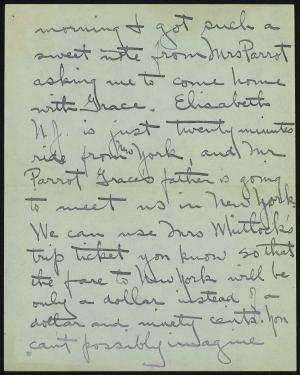 morning I got such a
sweet note from Mrs Parrot
asking me to come home
with Grace. Elisabeth
N.J. is just twenty minutes
ride from New York, and Mr.
Parrot Grace's father is going
to meet us in New York.
We can use Mrs Whitlock's
trip ticket you know so that
the fare to New York will be
only a dollar instead of a
dollar and ninety cents. You
can't possibly imagine